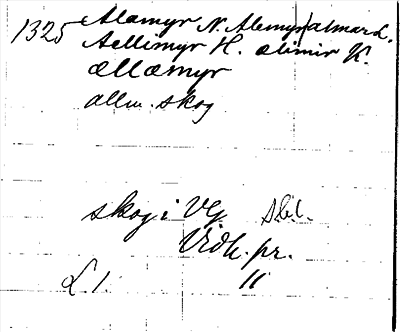 1325 Alamyr N. Alemyr/almar L.
Aellimyr H. alimir K.
ællæmyr
allm. skog
skog i Vg sbl.
Vidh. pr.
L. 1. 11